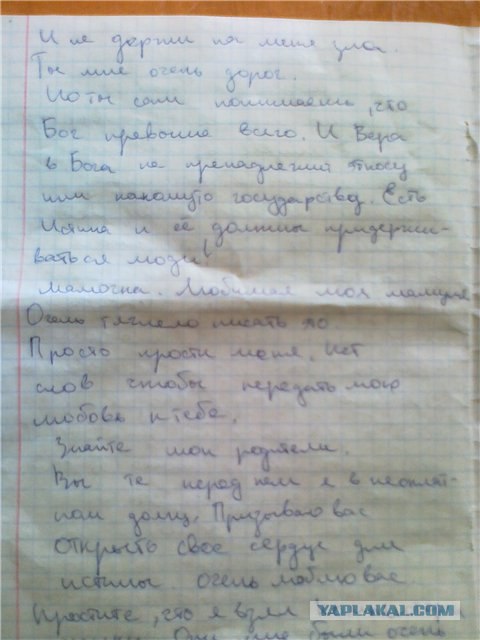 И не держи на меня зла.
Ты мне очень дорог.
Но ты сам понимаешь, что
Бог превыше всего. И Вера
в Бога не пренадлежит
государству. Есть
Истина и её должны придержи-
ваться люди!
Мамочка. Любимая моя мамуля
Очень тяжело писать это
Просто прости меня. Нет
слов чтобы передать мою
любовь к тебе.
Знайте мои родители.
Вы те перед кем я в неоплат-
ном долгу. Призываю вас
открыть свое сердце для
истины. Очень люблю вас.
Простите, что я взял
мне были очень
YAPLAKAL.COM